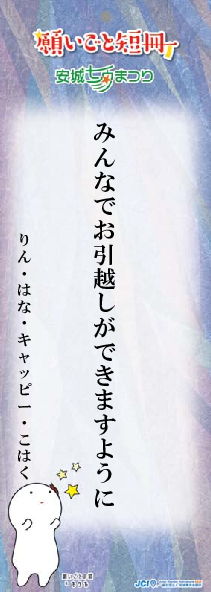 願いごと短冊
安城七夕まつり
みんなでお引越しができますように
りん・はな・キャッピー・こはく
JCI